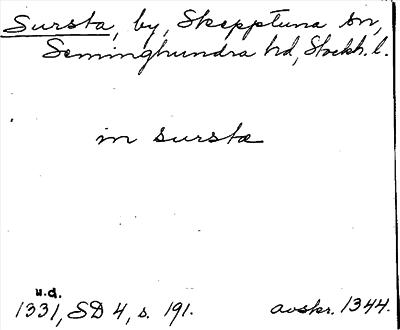 Sursta, by, Skepptuna sn,
Seminghundra hd, Stockh. l.
in surstæ
u.d.
1331, SD 4, s. 191. avskr. 1344.